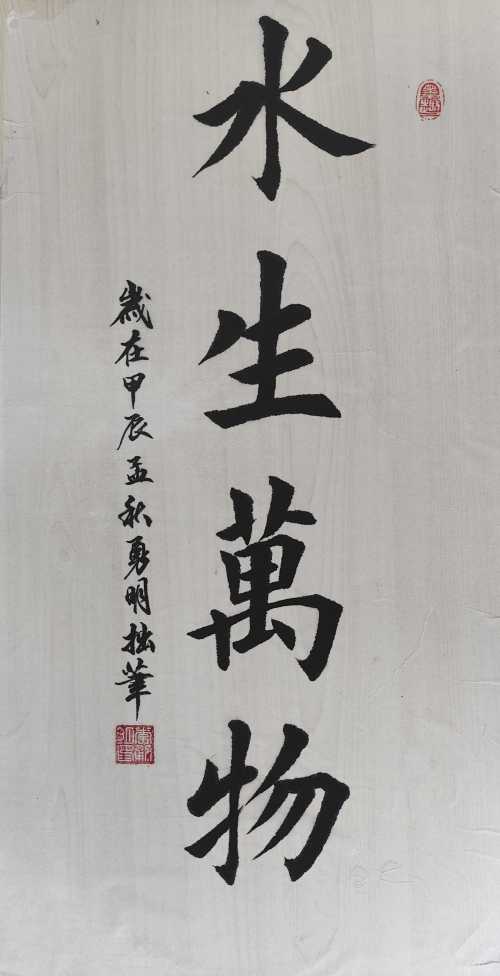 水生萬物
歲在甲辰孟秋勇明拙筆